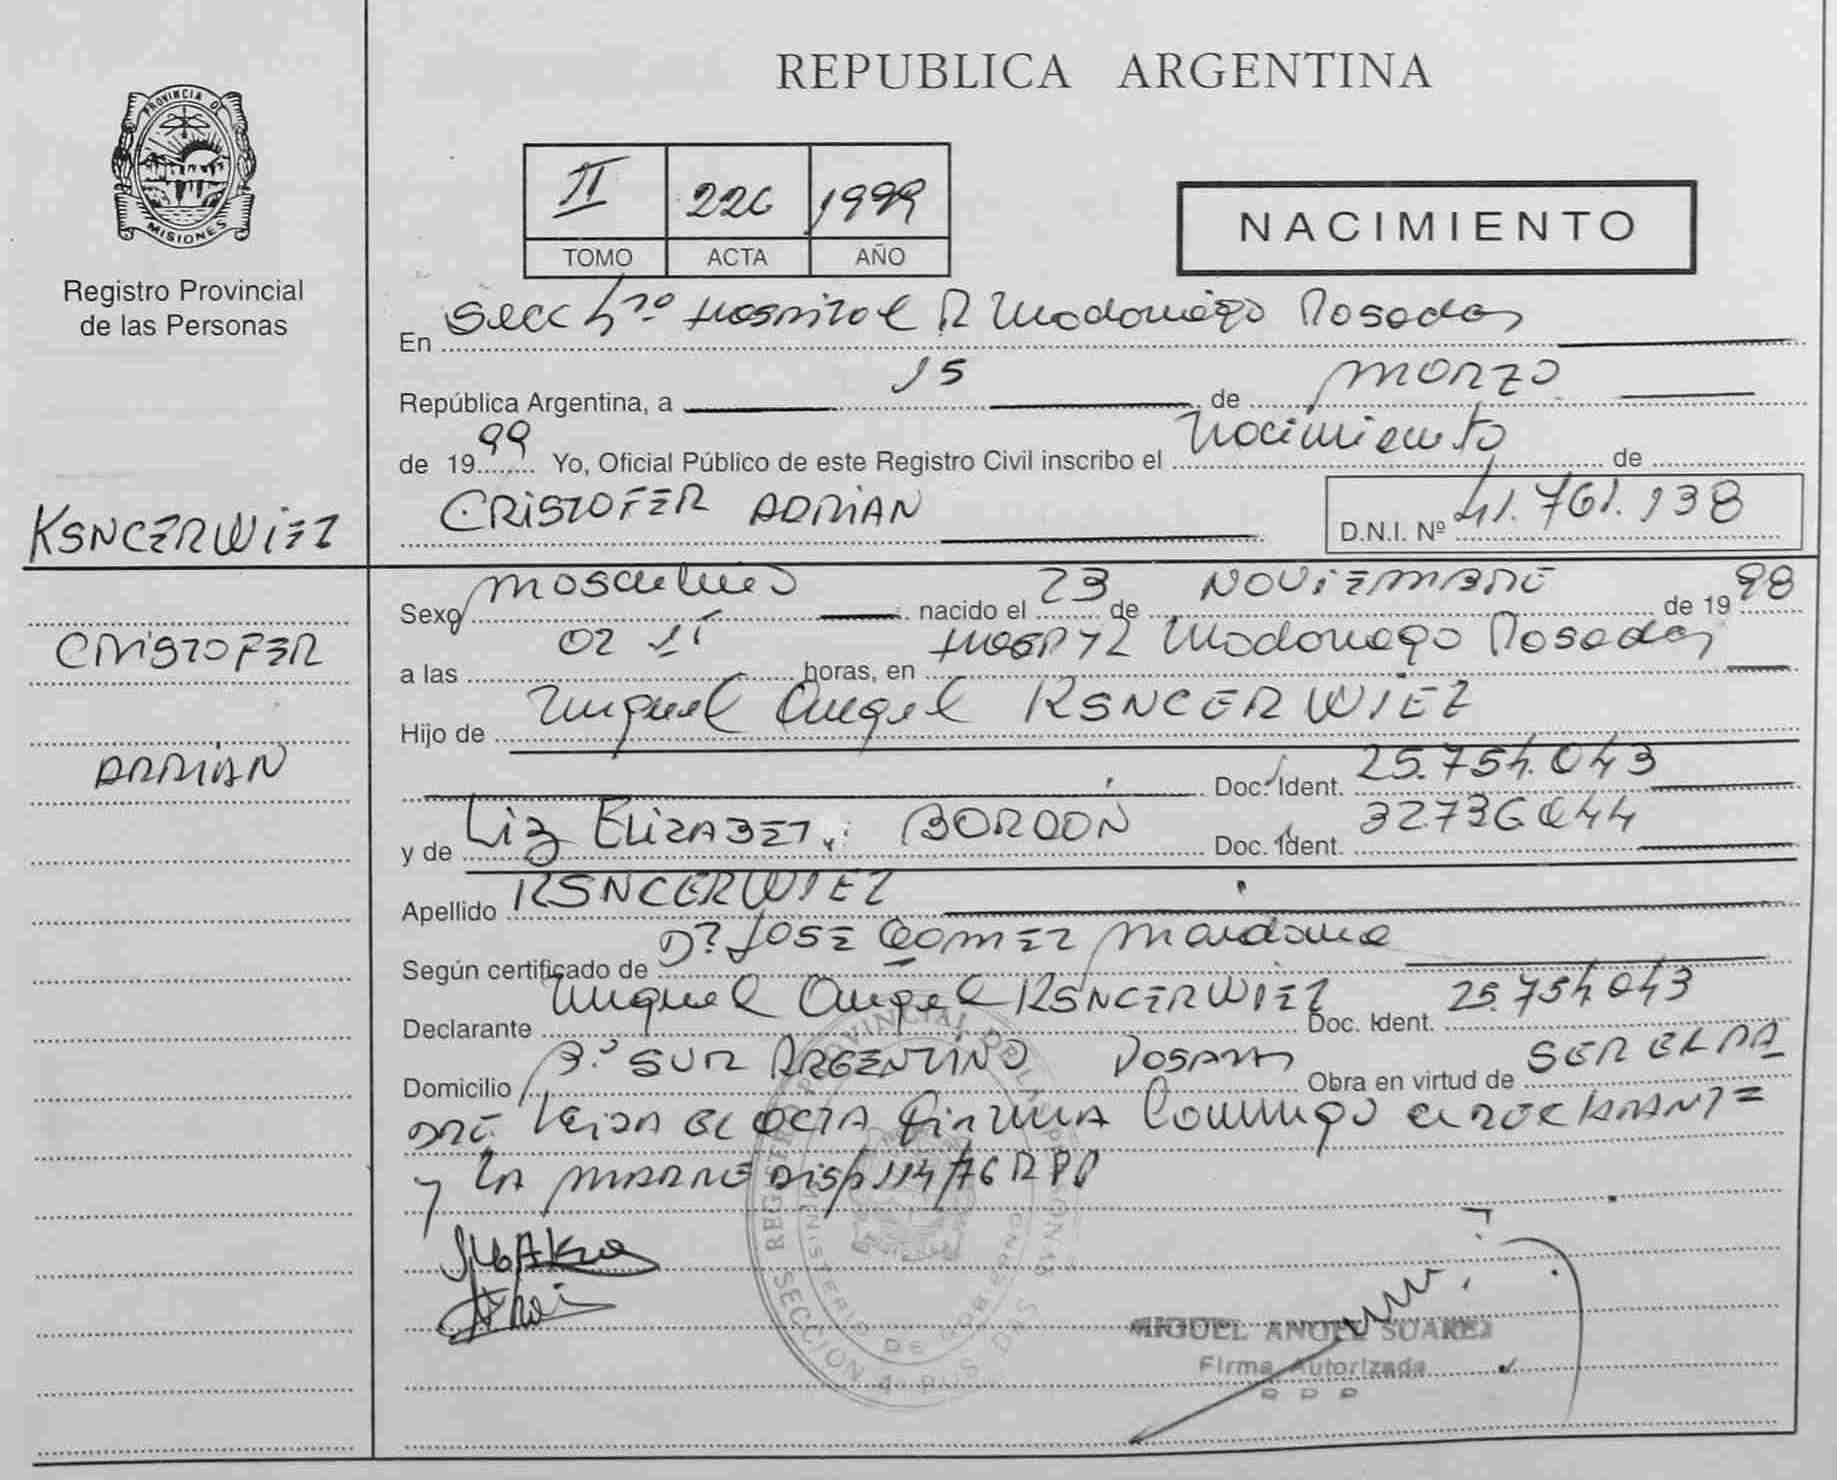 REPUBLICA ARGENTINA
PROVINCIA DE
MISIONES
Registro Provincial
de las Personas
II 226 1999
TOMO ACTA AÑO
NACIMIENTO
En Secc 4ta Hospital R Madariaga Posadas
República Argentina, a 15 de marzo
de 1999 Yo, Oficial Público de este Registro Civil inscribo el Nacimiento de
CRISTOFER ADRIAN D.N.I. Nº 41.761.138
KSNCZERWIEZ
CRISTOFER
ADRIAN
Sexo masculino nacido el 23 de NOVIEMBRE de 1998
a las 02 15 horas, en Hosp Madariaga Posadas
Hijo de Miguel Angel KSNCERWIEZ
Doc. Ident. 25.754.043
y de Liz ELIZABET BORDON Doc. Ident. 32736044
Apellido KSNCERWIEZ
Según certificado de Dr JOSE GOMEZ Maidana
Declarante Miguel Angel KSNCERWIEZ Doc. Ident. 25.754.043
Domicilio Bº SUR ARGENTINO POSADAS Obra en virtud de SER EL PA
DRE Leida EL ACTA firma Conmigo el DECLARANTE
y LA MADRE Disp 114/76 RPP
REGISTRO PROVINCIAL DE LAS PERSONAS
MINISTERIO DE GOBIERNO
SECCION 4º POSADAS
MIGUEL ANGEL SUAREZ
Firma Autorizada
R P P